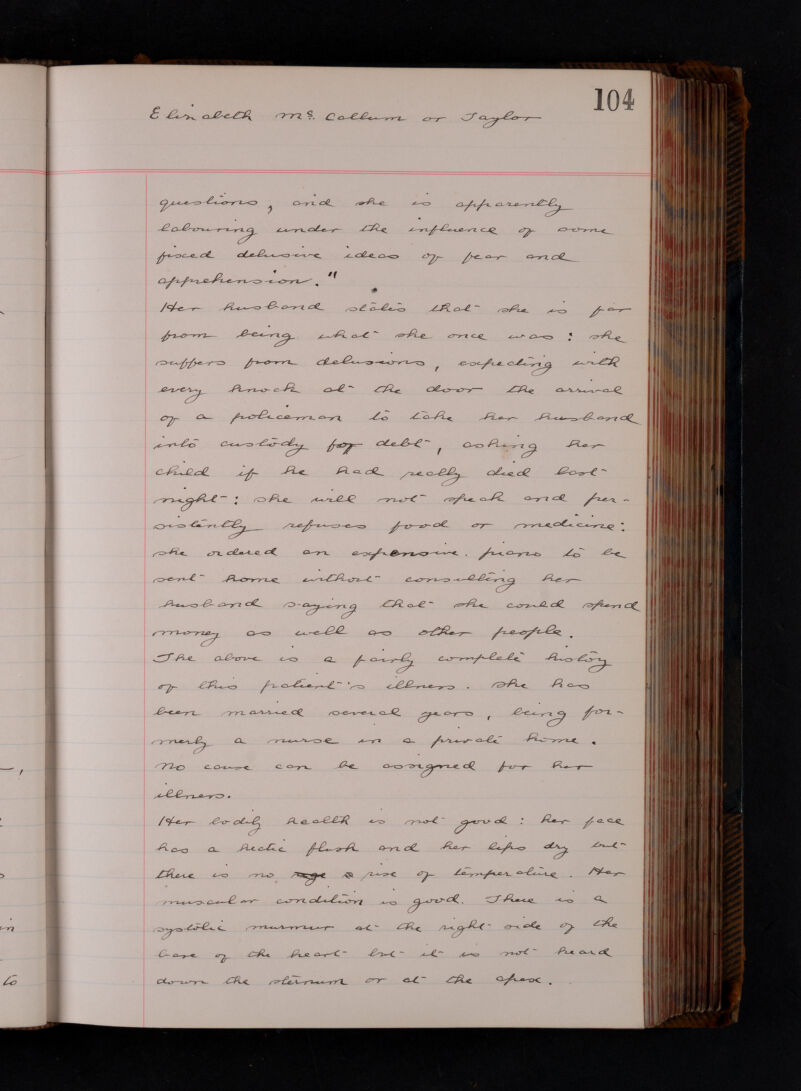 104
Elizabeth Mc. Callum or Taylor
questions, and she is apparently
labouring under the influence of some
fixed delusive ideas of fear and
apprehension."
Her husband states that she is far
from being what she once was: she
suffers from delusions, expecting with
every knock at the door the arrival
of a policeman to take her husband
into custody for debt, asking her
child if he had really died last
night: she will not speak and per-
sistently refuses food or medicine:
she ordered an expensive piano to be
sent home without consulting her
husband saying that she could spend
money as well as other people.
The above is a fairly complete history
of this patient's illness. she has
been married several years, being for-
merly a nurse in a private home.
No cause can be assigned for her
illness.
Her bodily health is not good: her face
has a hectic flush and her lips dry but
there is no rise of temperature. Her
muscular condition is good. There is a
systolic murmur at the right side of the
base of the heart but it is not heard
down the sternum or at the apex.
in
to